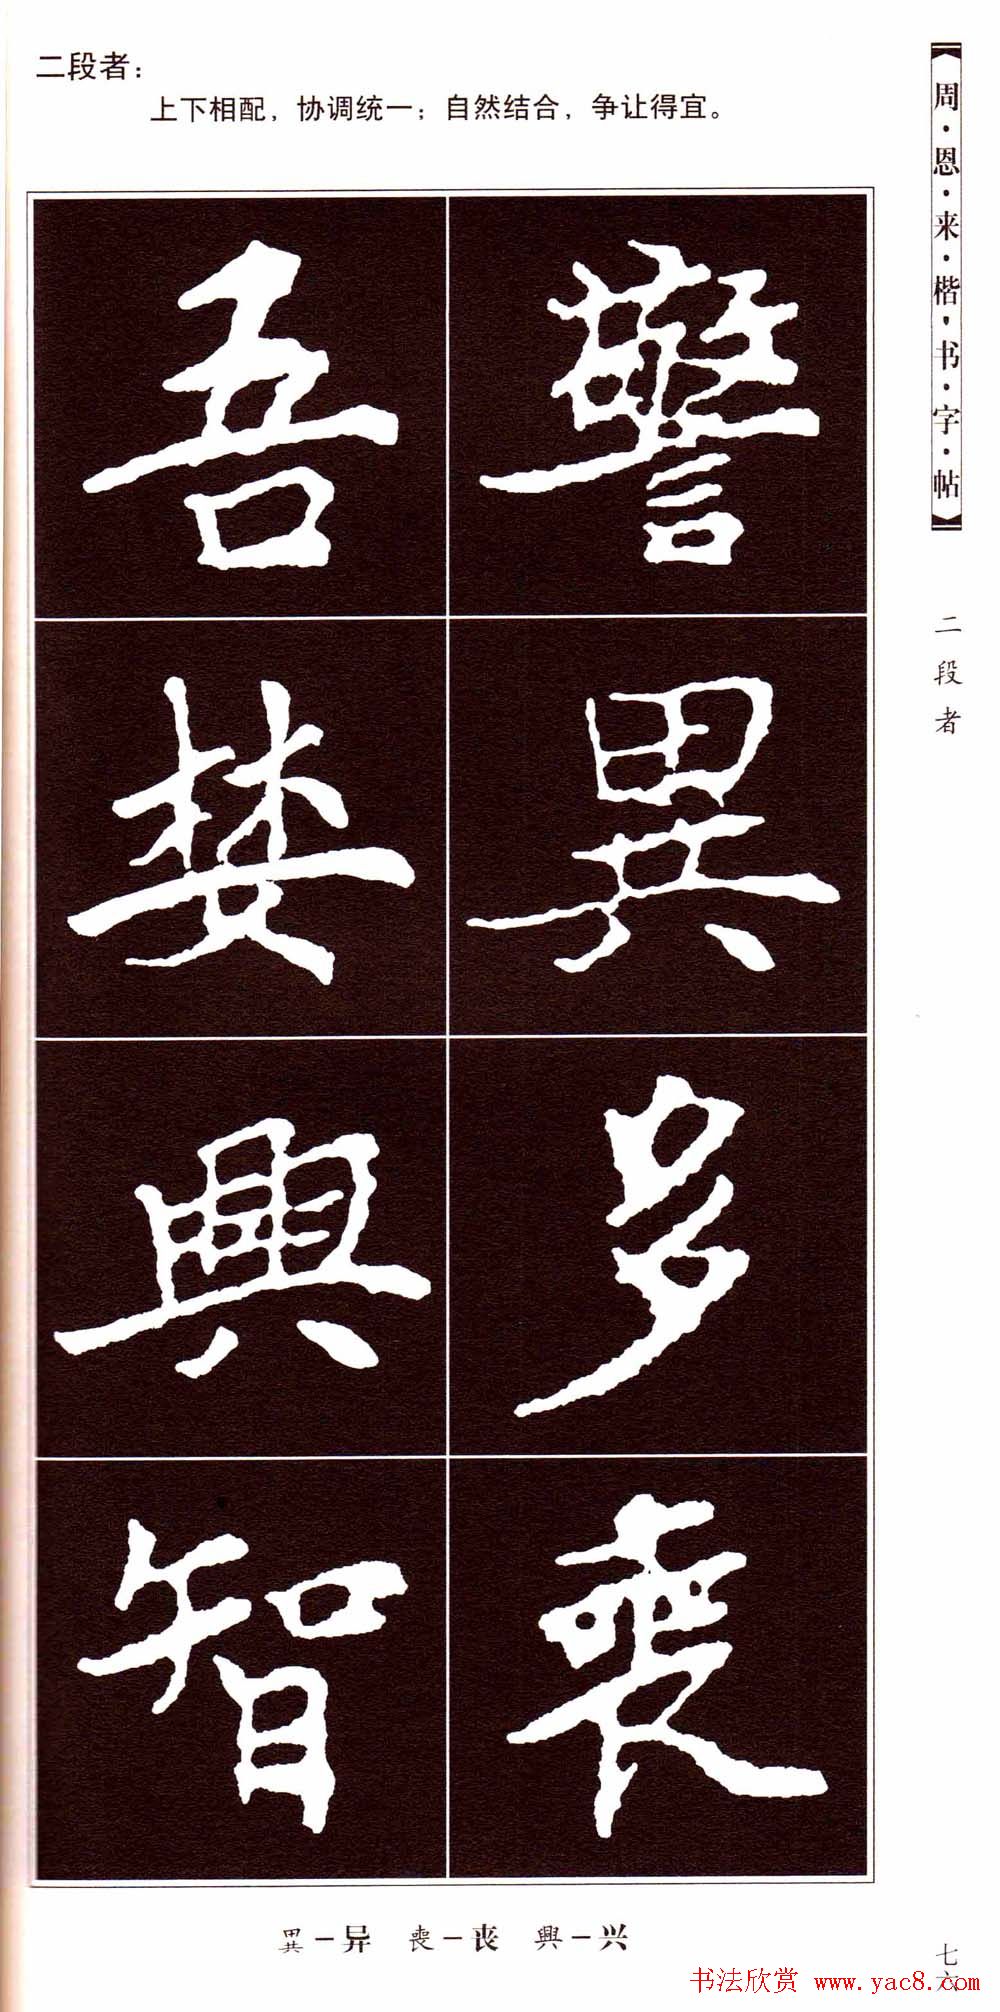 二段者：
上下相配，协调统一；自然结合，争让得宜。
周·恩·来·楷·书·字·帖
二段者
警異多喪
吾婪興智
異－异 喪－丧 興－兴
七六
书法欣赏 www.yac8.com